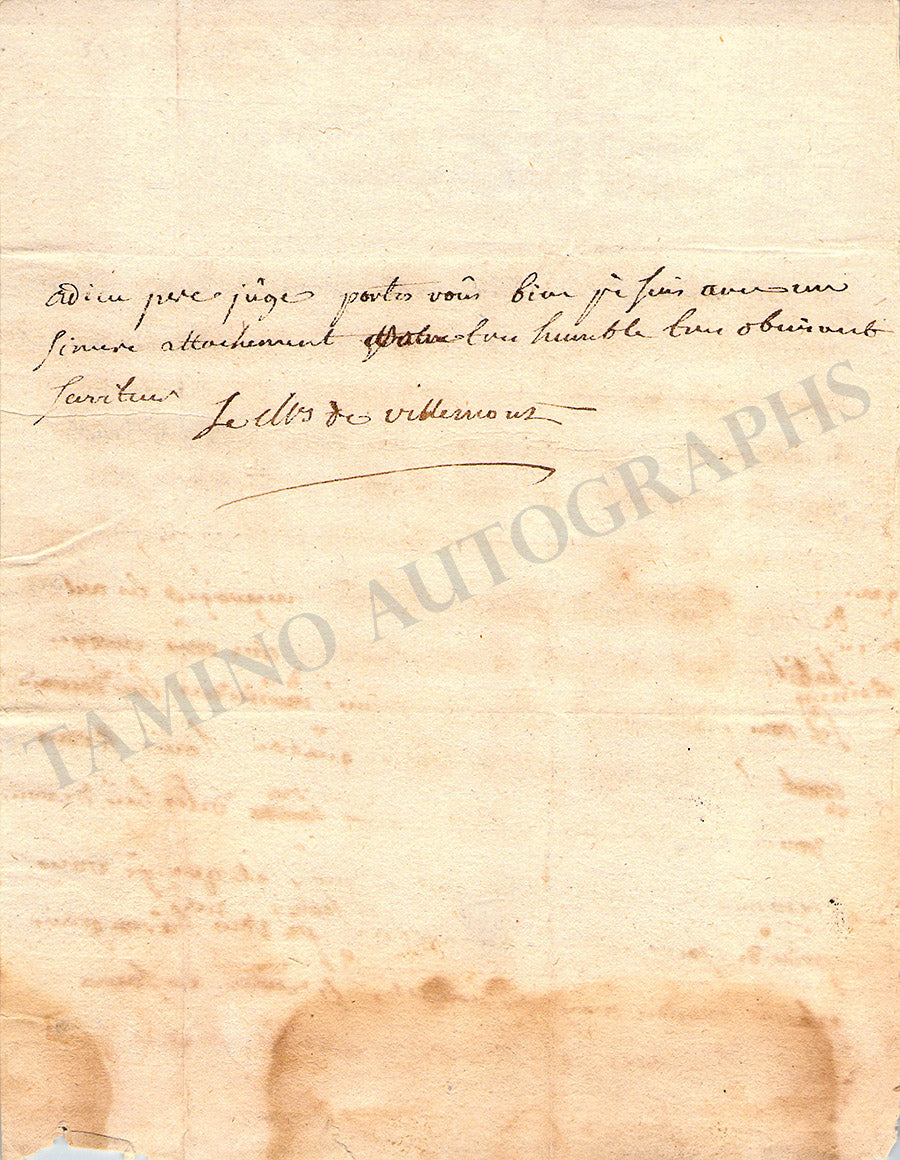 adieu pere jûge portes voûs bien je suis avec un
sincere attachement votre tres humble tres obeissant
serviteur
Le Chrs de villemont
TAMINO AUTOGRAPHS